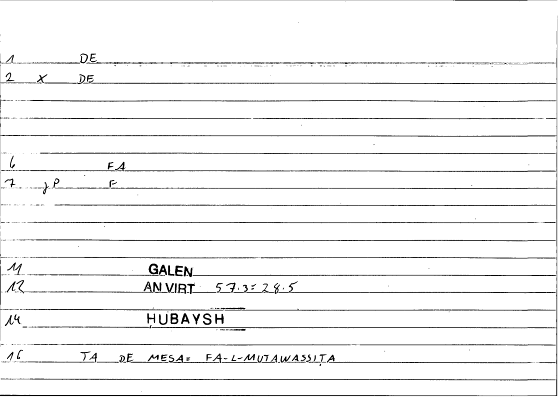 1 DE
2 x DE
6 FA
7 yP F
11 GALEN
12 AN VIRT 57.3=28.5
14 ḤUBAYSH
16 TA DE MESA= FA-L-MUTAWASSIṬA